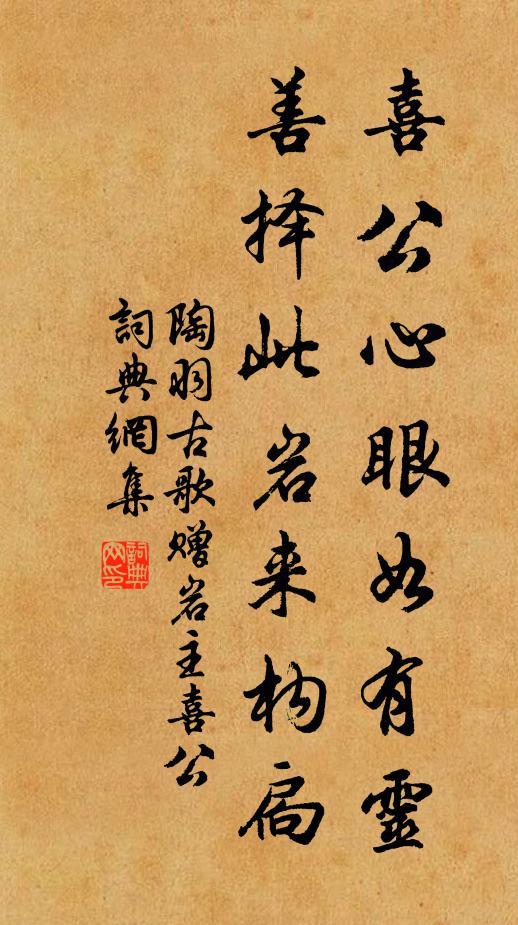 喜公心眼如有靈
善择此岩来构扃
陶羽古歌赠岩主喜公
詞典網集
詞典網印